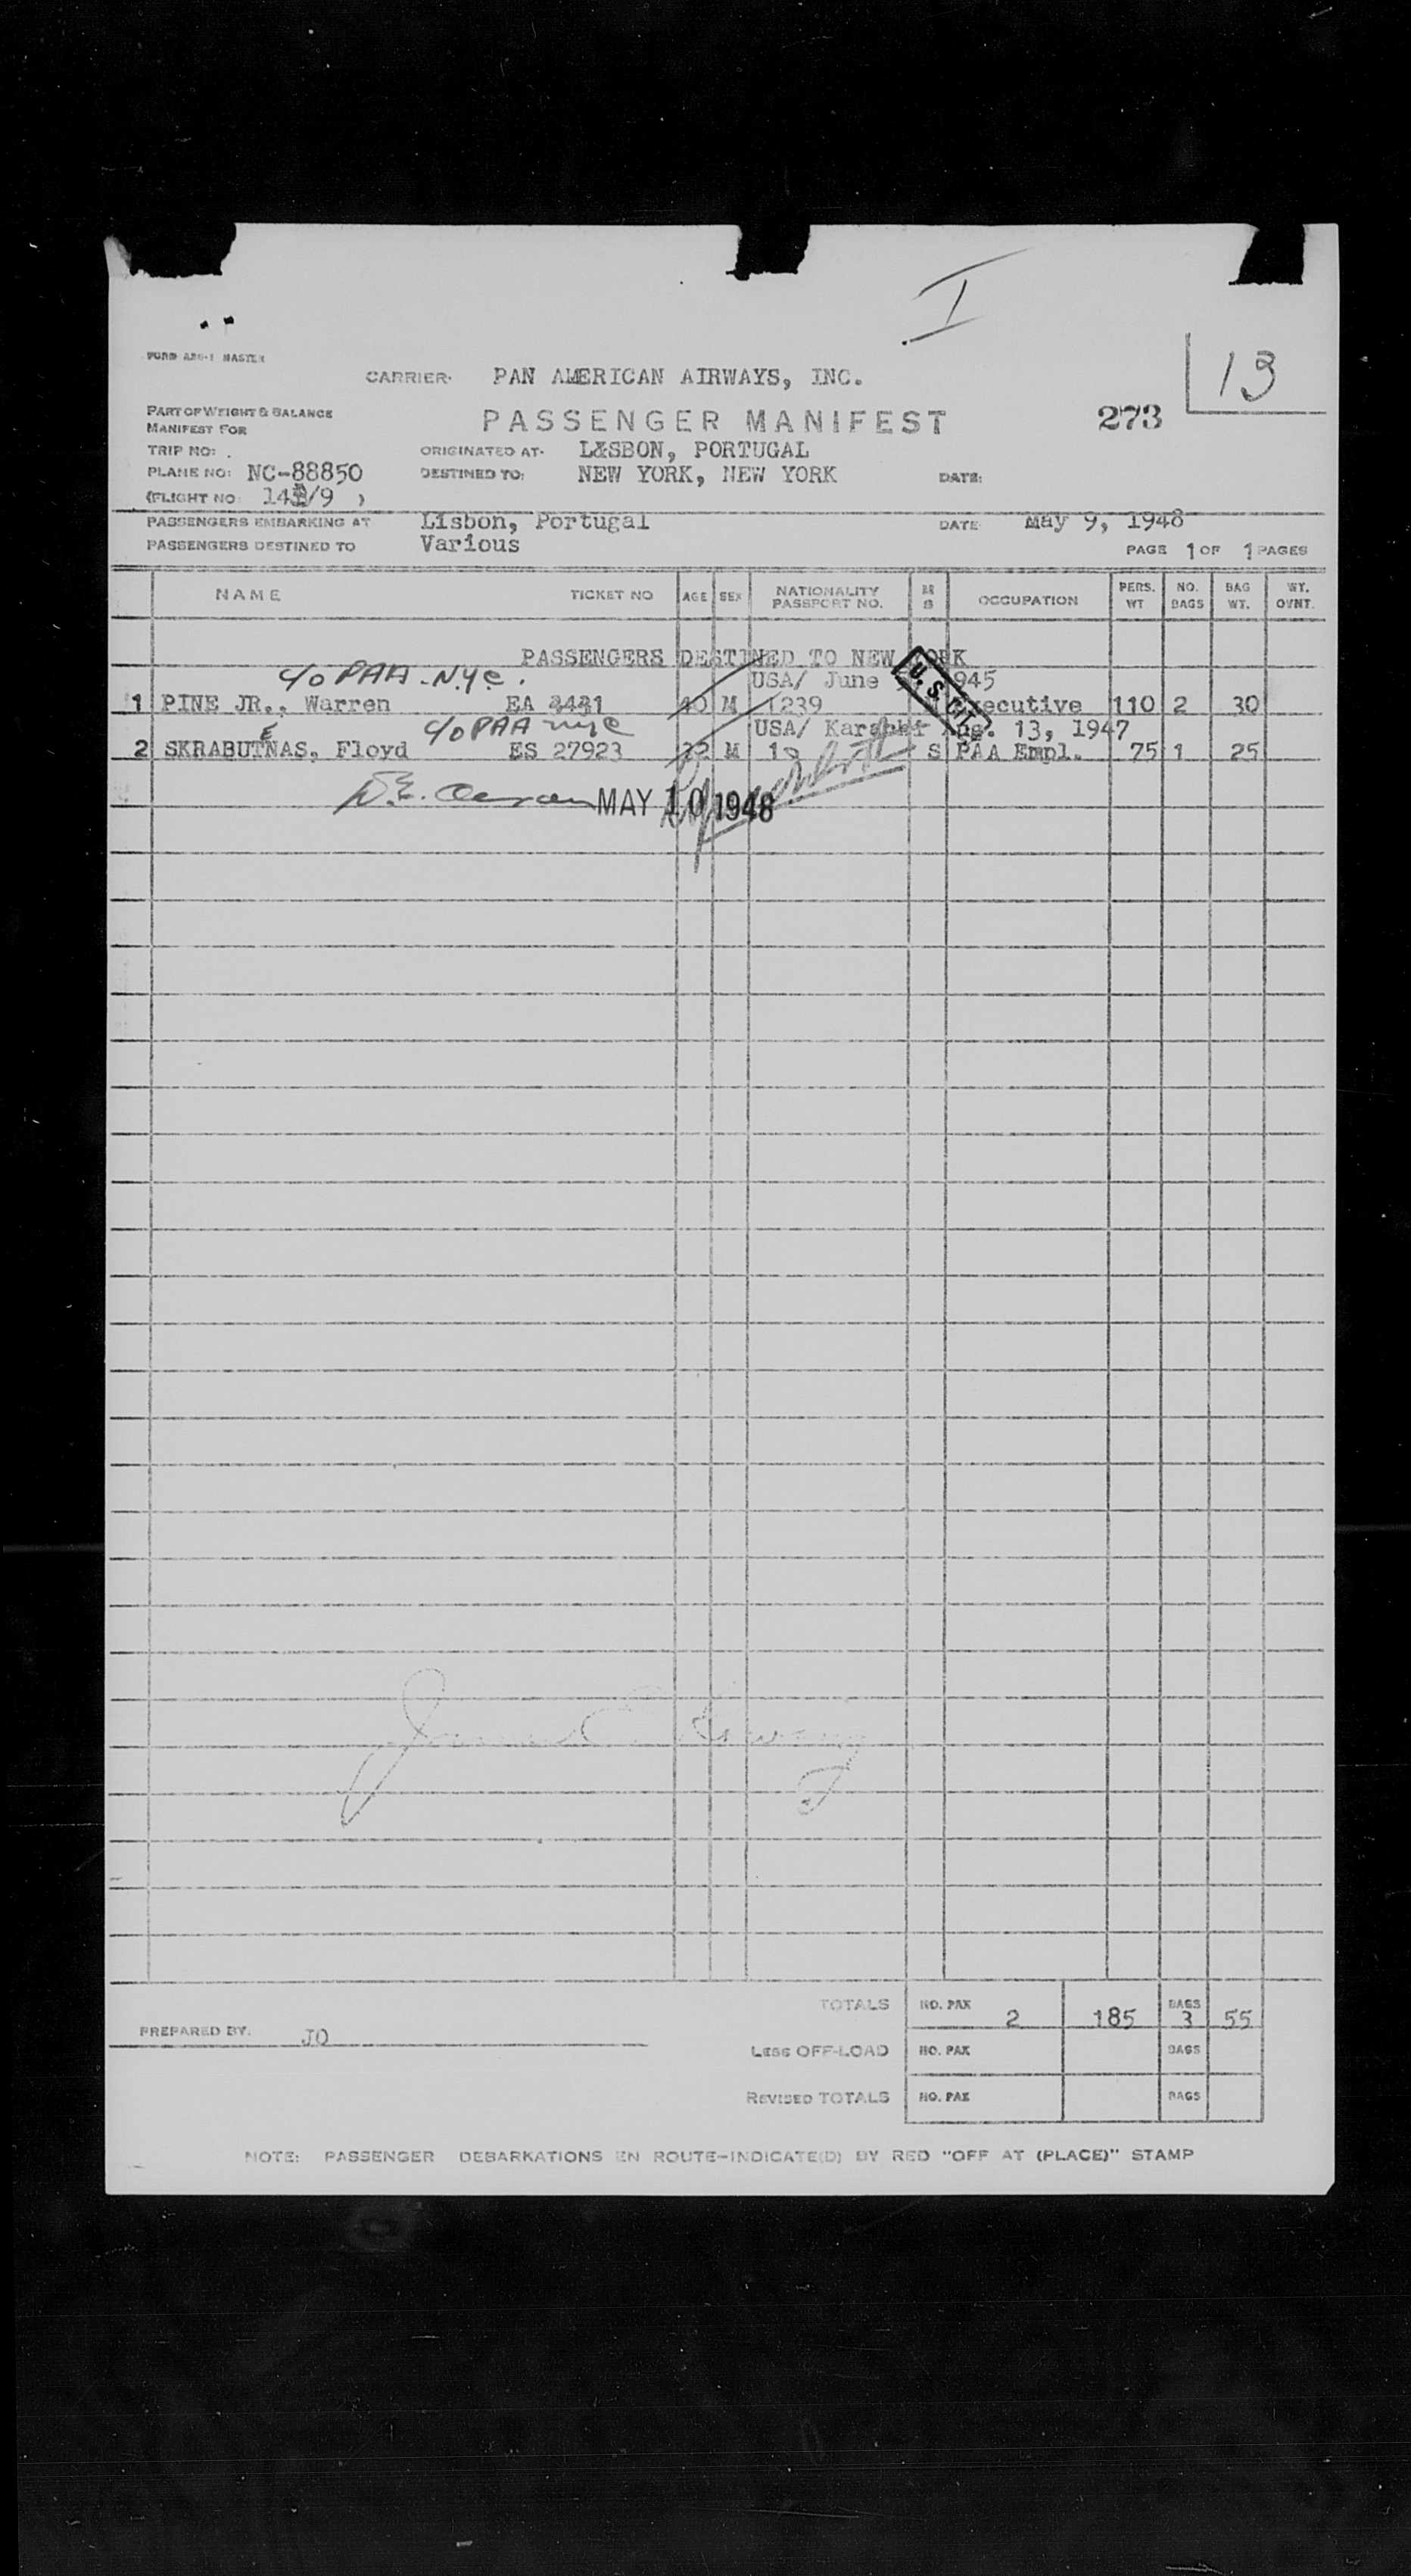 I
FORM ADS-1 MASTER
13
CARRIER- PAN AMERICAN AIRWAYS, INC.
PART OF WEIGHT & BALANCE
MANIFEST FOR
PASSENGER MANIFEST
273
TRIP NO:
ORIGINATED AT- LISBON, PORTUGAL
PLANE NO: NC-88850
DESTINED TO: NEW YORK, NEW YORK
DATE:
(FLIGHT NO: /9 )
PASSENGERS EMBARKING AT Lisbon, Portugal DATE May 9, 1948
PASSENGERS DESTINED TO Various
PAGE 1 OF 1 PAGES
NAME TICKET NO AGE SEX NATIONALITY PASSPORT NO. M S OCCUPATION PERS. WT NO. BAGS BAG WT. WT. OVNT.
PASSENGERS DESTINED TO NEW YORK
c/o PAA - N.Y.C. USA/ June 1945
1 PINE JR., Warren EA 40 M 1239 Executive 110 2 30
U.S. CIT.
c/o PAA NYC USA/ Karachi Aug. 13, 1947
2 SKRABUTENAS, Floyd ES 27923 M S PAA Empl. 75 1 25
MAY 10 1948
TOTALS NO. PAX 2 185 BAGS 3 55
PREPARED BY: JO
LESS OFF-LOAD NO. PAX BAGS
REVISED TOTALS NO. PAX BAGS
NOTE: PASSENGER DEBARKATIONS EN ROUTE-INDICATE(D) BY RED "OFF AT (PLACE)" STAMP